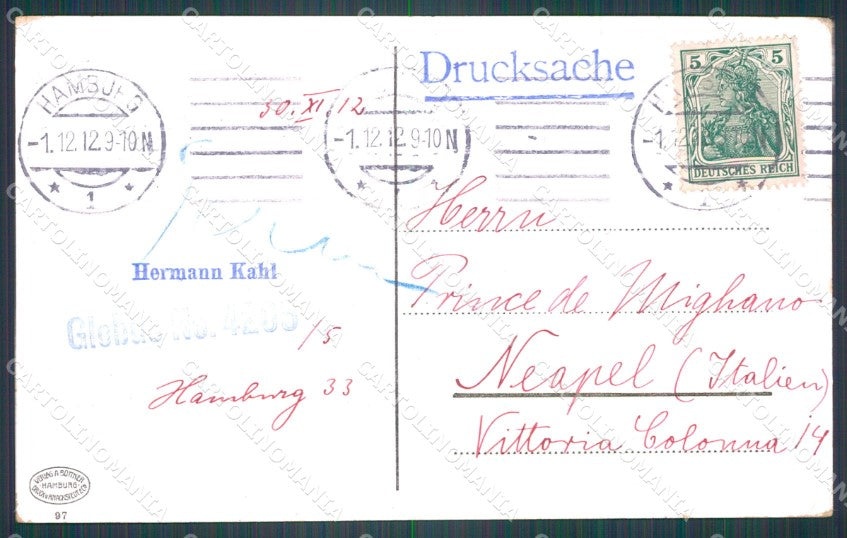 HAMBURG
-1.12.12.9-10N
* 1 *
30.XI.12
Hermann Kahl
Globus No. 4285
/5
Hamburg 33
HAMBURG
97
Drucksache
-1.12.12.9-10N
5 5
DEUTSCHES REICH
Herrn
Prince de Mighano
Neapel (Italien)
Vittoria Colonna 14
CARTOLINOMANIA